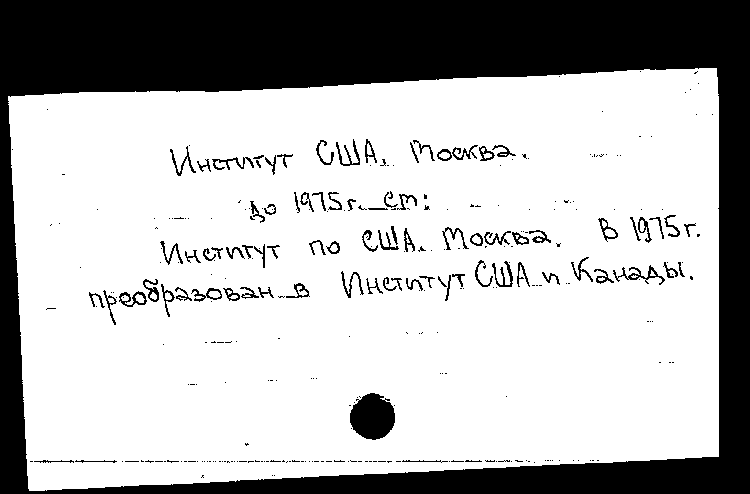 Институт США. Москва.
до 1975г. см:
Институт по США. Москва. В 1975г.
преобразован в Институт США и Канады.